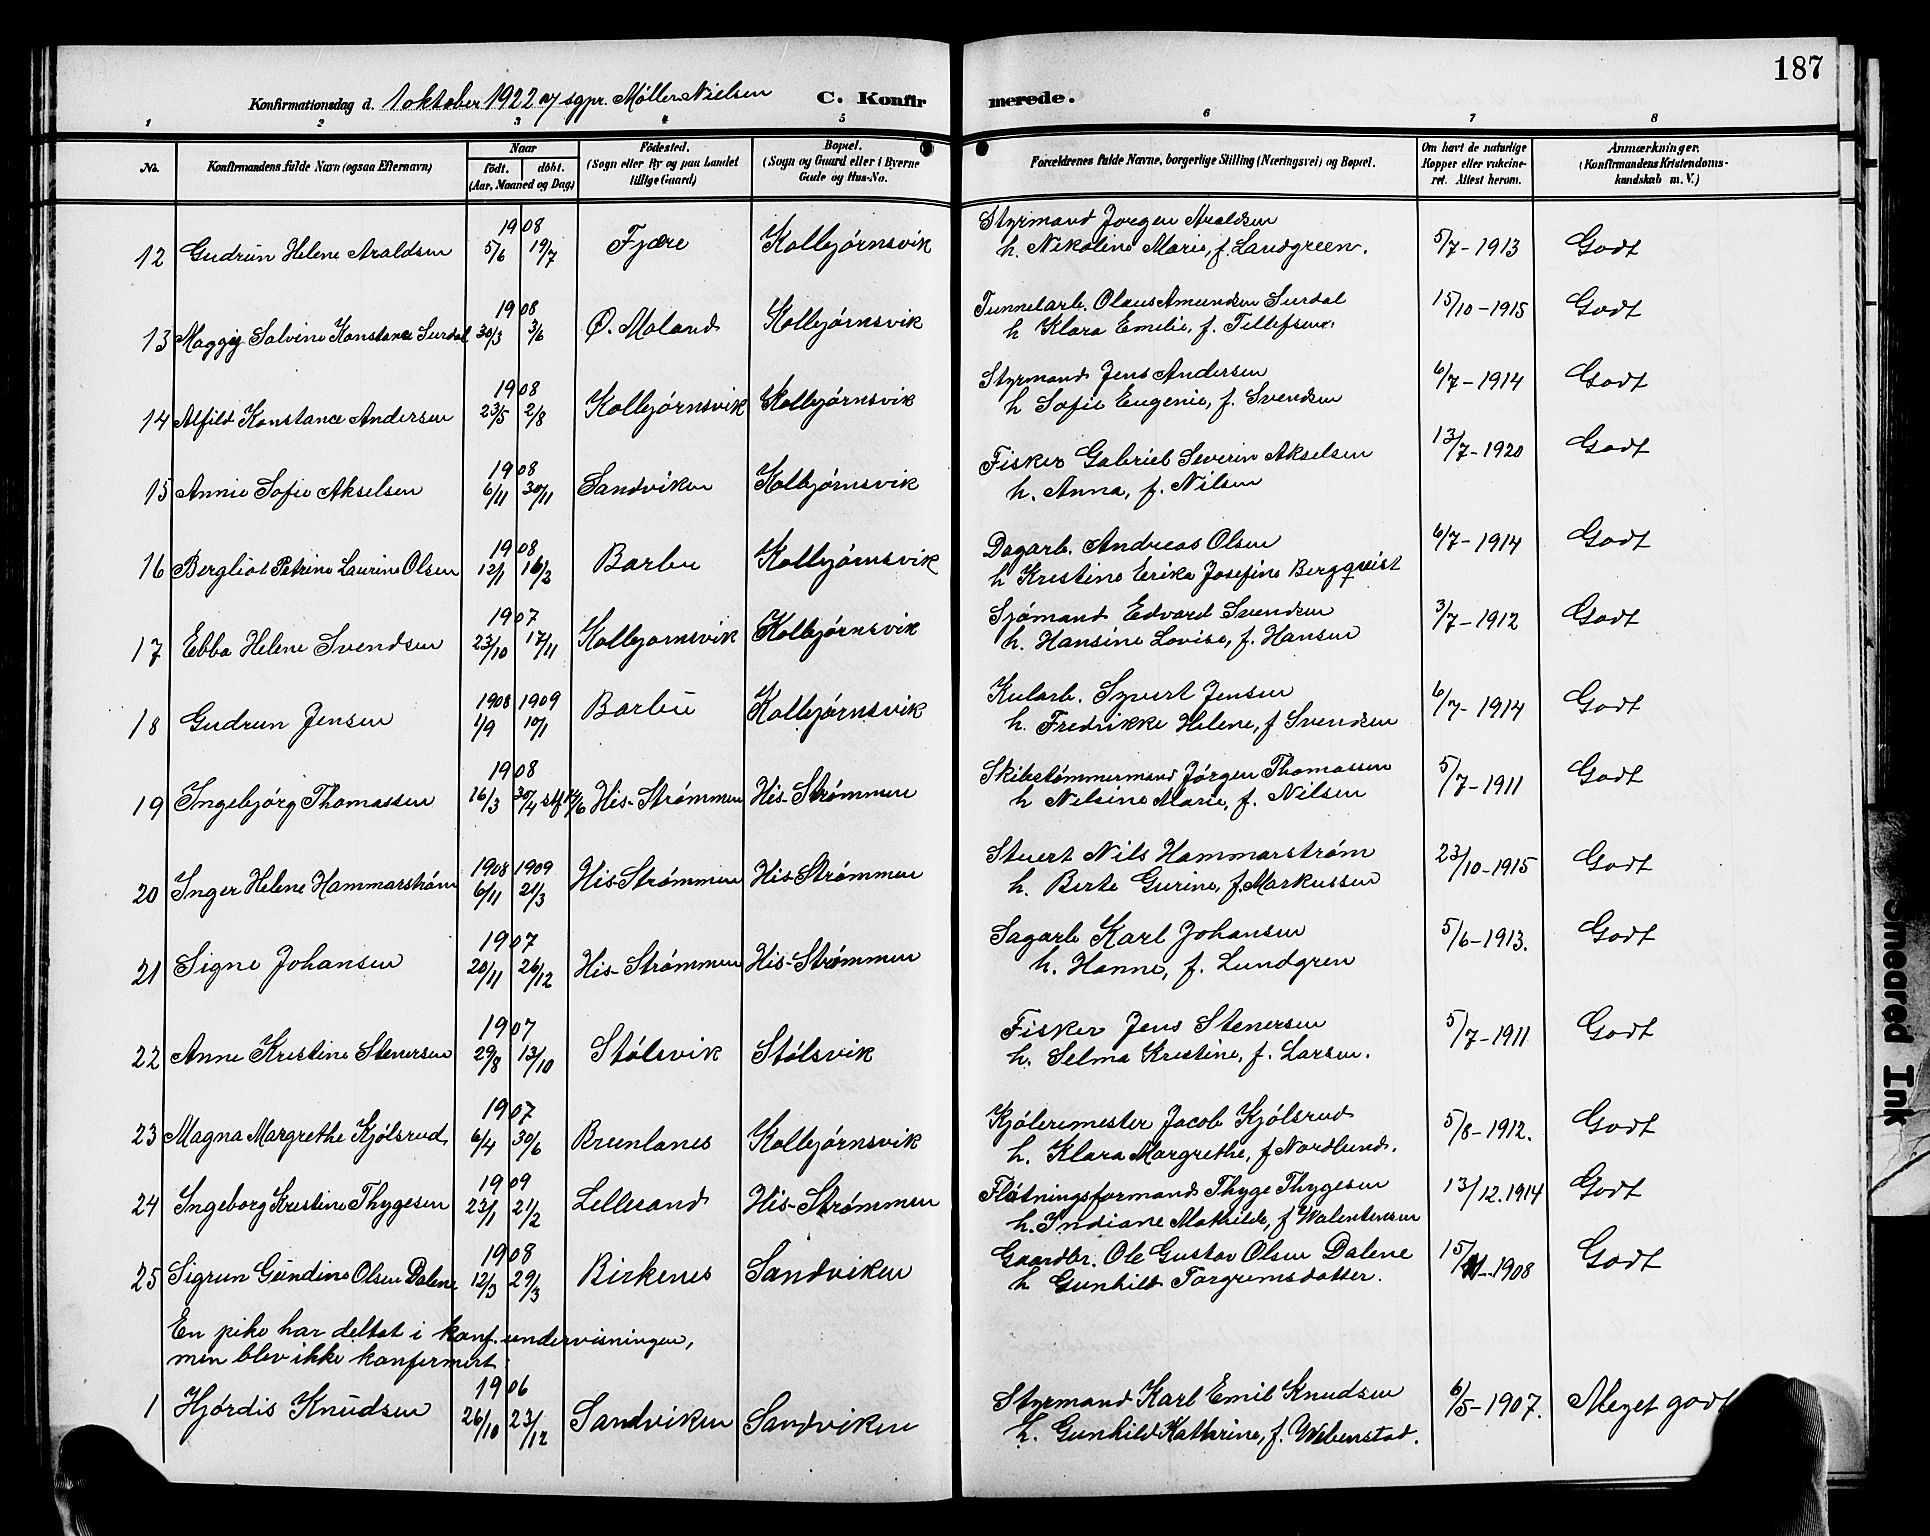 187
Konfirmationsdag d. 1 oktober 1922 av sgpr. Møller Nielsen C. Konfirmerede.
1 2 3 4 5 6 7 8
No. Konfirmandens fulde Navn (ogsaa Efternavn) Naar født. døbt. (Aar, Maaned og Dag) Fødested. (Sogn eller By og paa Landet tillige Gaard) Bopæl. (Sogn og Gaard eller i Byerne Gade og Hus-No. Forældrenes fulde Navne, borgerlige Stilling (Næringsvei) og Bopæl. Om havt de naturlige Kopper eller vakcineret. Attest herom. Anmærkninger. (Konfirmandens Kristendomskundskab m. V.)
12 Gudrun Helene Araldsen 1908 5/6 19/7 Fjære Kolbjørnsvik Styrmand Jørgen Araldsen 5/7-1913 Godt
h. Nikoline Marie, f. Landgreen.
13 Maggy Salvine Konstance Surdal 1908 30/3 3/6 Ø. Moland Kolbjørnsvik Tunnelarb. Olaus Amundsen Surdal 15/10-1915 Godt
h Klara Emelie, f. Tellefsen.
14 Alfild Konstance Andersen 1908 23/5 2/8 Kolbjørnsvik Kolbjørnsvik Styrmand Jens Andersen 6/7-1914 Godt
h Sofie Eugenie, f. Svendsen
15 Annie Sofie Akselsen 1908 6/11 30/11 Sandviken Kolbjørnsvik Fisker Gabriel Severin Akselsen 13/7-1920 Godt
h. Anna, f. Nilsen
16 Bergliot Petrine Laurine Olsen 1908 12/1 16/2 Barbu Kolbjørnsvik Dagarb. Andreas Olsen 6/7-1914 Godt
h Kristine Erika Josefine Bergqveist
17 Ebba Helene Svendsen 1907 23/10 17/11 Kolbjørnsvik Kolbjørnsvik Sjømand Edvard Svendsen 3/7-1912 Godt
h. Hansine Lovise, f. Hansen
18 Gudrun Jensen 1908 1909 1/9 10/1 Barbu Kolbjørnsvik Kularb. Syvert Jensen 6/7-1914 Godt
h. Fredrikke Helene, f Svendsen
19 Ingebjørg Thomassen 1908 16/3 30/4 His-Strømmen His-Strømmen Skibstømmermand Jørgen Thomassen 5/7-1911 Godt
h Nilsine Marie, f. Nilsen
20 Inger Helene Hammarstrøm 1908 1909 6/11 21/3 His-Strømmen His-Strømmen Stuert Nils Hammarstrøm 23/10-1915 Godt
h. Berte Gurine, f. Markussen
21 Signe Johansen 1907 20/11 26/12 His-Strømmen His-Strømmen Sagarb Karl Johansen 5/6-1913. Godt
h. Hanne, f. Lundgren
22 Anne Kristine Stenersen 1907 29/8 13/10 Stølsvik Stølsvik Fisker Jens Stenersen 5/7-1911 Godt
h. Selma Kristine, f. Larsen.
23 Magna Margrethe Kjølsrud 1907 6/4 30/6 Brunlanes Kolbjørnsvik Kjøleremester Jacob Kjølsrud 5/8-1912. Godt
h. Klara Margrethe, f Nordlund.
24 Ingeborg Kristine Thygesen 1909 23/1 21/2 Lillesand His-Strømmen Fløtningsformand Thyge Thygesen 13/12.1914 Godt
h. Indiane Mathilde, f Walentensen
25 Sigrun Gundine Olsen Dalene 1908 12/3 29/3 Birkenes Sandviken Gaardbr. Ole Gustav Olsen Dalene 15/11-1908 Godt
h Gunhild Torgrimsdatter.
En pike har deltat i konf. undervisningen,
men blev ikke konfermert:
1 Hjørdis Knudsen 1906 26/10 23/12 Sandviken Sandviken Styrmand Karl Emil Knudsen 6/5-1907. Meget godt
h. Gunhild Kathrine, f. Webenstad.
Smeared Ink